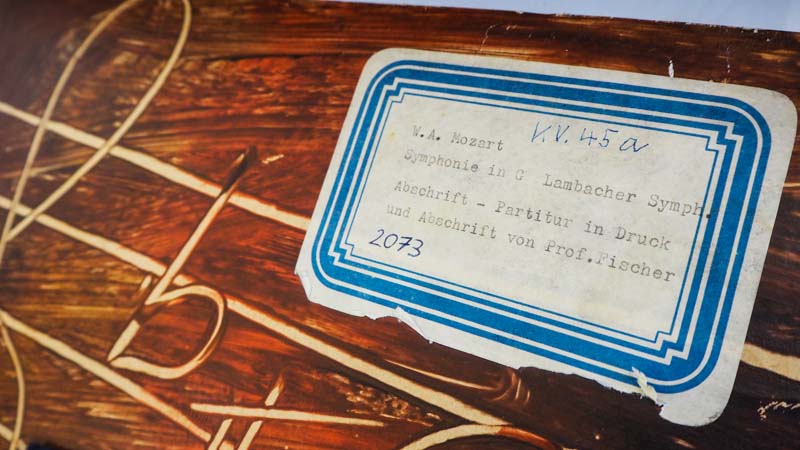 W.A. Mozart K.V. 45a
Symphonie in G Lambacher Symph.
Abschrift - Partitur in Druck
und Abschrift von Prof.Fischer
2073